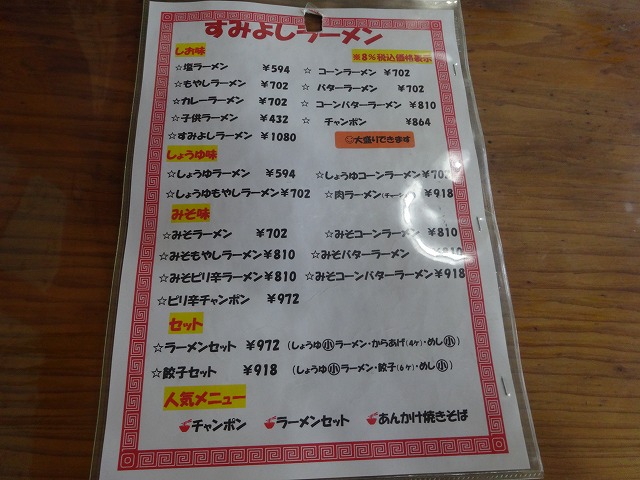 すみよしラーメン
しお味 ※8%税込価格表示
☆塩ラーメン ￥594 ☆ コーンラーメン ￥702
☆もやしラーメン ￥702 ☆ バターラーメン ￥702
☆カレーラーメン ￥702 ☆ コーンバターラーメン ￥810
☆子供ラーメン ￥432 ☆ チャンポン ￥864
☆すみよしラーメン ￥1080 ☺大盛りできます
しょうゆ味
☆しょうゆラーメン ￥594 ☆しょうゆコーンラーメン ￥702
☆しょうゆもやしラーメン￥702 ☆肉ラーメン ￥918
みそ味
☆みそラーメン ￥702 ☆みそコーンラーメン ￥810
☆みそもやしラーメン￥810 ☆みそバターラーメン ￥810
☆みそピリ辛ラーメン￥810 ☆みそコーンバターラーメン￥918
☆ピリ辛チャンポン ￥972
セット
☆ラーメンセット ￥972 (しょうゆ㊙ラーメン・からあげ(4ヶ)・めし小)
☆餃子セット ￥918 (しょうゆ小ラーメン・餃子(6ヶ)・めし小)
人気メニュー
チャンポン ラーメンセット あんかけ焼きそば